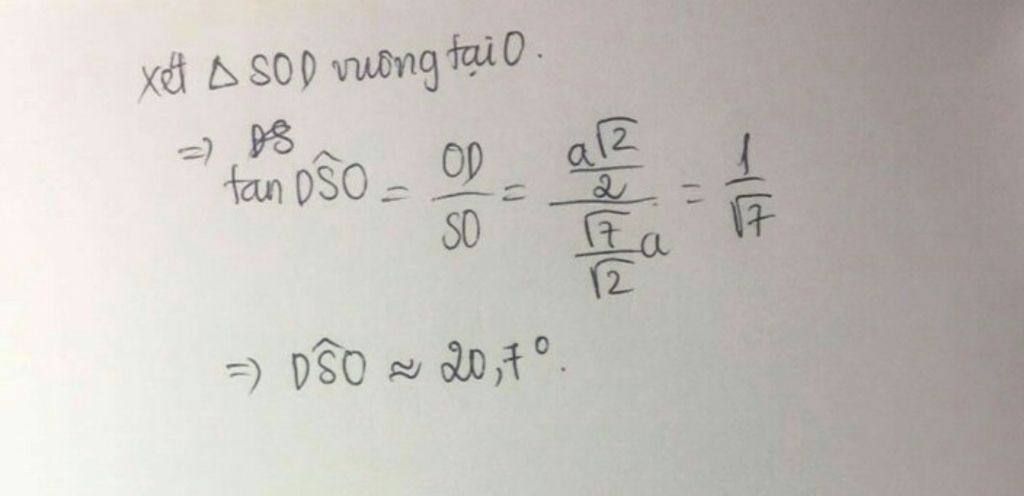 xét Δ SOD vuông tại O.
=> tan DŜO = OD/SO = (a√2/2)/(√7/√2 a) = 1/√7
=> DŜO ≈ 20,7°.